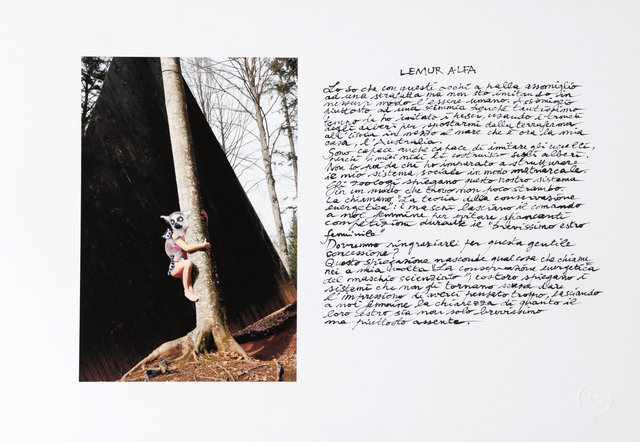 LEMUR ALFA
Lo so che con questi occhi a palla assomiglio
ad una serafatta ma non sto imitando in
nessun modo l'essere umano. Assomiglio
piuttosto ad una scimmia benché tantissimo
tempo fa ho imitato i pesci, usando i tronchi
degli alberi per spostarmi dalla terraferma
all'isola in mezzo al mare che è ora la mia
casa, l'Australia.
Sono capace anche di imitare gli uccelli,
perché i miei nidi li costruisco sugli alberi.
Non so poi da chi ho imparato a strutturare
il mio sistema sociale in modo matriarcale.
Gli zoologi spiegano questo nostro sistema
in un modo che trovo non poco strambo.
La chiamano "La teoria della conservazione
energetica": i maschi lasciano il comando
a noi femmine per evitare spiacenti
competizioni durante il "brevissimo estro
femminile"
Dovremmo ringraziarli per questa gentile
concessione?
Questa spiegazione nasconde qualcosa che chiame
rei a mia volta "La conservazione energetica
del maschio scienziato": costoro spiegano i
sistemi che non gli tornano senza dare
l'impressione di averci pensato troppo, lasciando
a noi femmine la chiarezza di quanto il
loro estro sia non solo brevissimo
ma piuttosto assente.